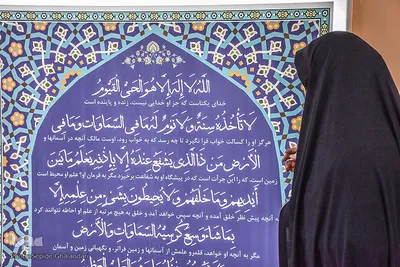 اللهُ لا إِلهَ إِلاَّ هُوَ الْحَیُّ الْقَیُّومُ
خدای یکتاست که جز او خدایی نیست، زنده و پاینده است
لا تَأْخُذُهُ سِنَةٌ وَلا نَوْمٌ لَهُ ما فِی السَّماواتِ وَما فِی
هرگز او را کسالت خواب فرا نگیرد تا چه رسد که به خواب رود، اوست مالک آنچه در آسمانها و
الْأَرْضِ مَنْ ذَا الَّذی یَشْفَعُ عِنْدَهُ إِلاَّ بِإِذْنِهِ یَعْلَمُ ما بَیْنَ
زمین است، که را این جرأت است که در پیشگاه او به شفاعت برخیزد مگر به فرمان او؟ علم او محیط است
أَیْدیهِمْ وَما خَلْفَهُمْ وَلا یُحیطُونَ بِشَیْءٍ مِنْ عِلْمِهِ إِلاَّ
به آنچه پیش نظر خلق آمده و آنچه سپس خواهد آمد و خلق به هیچ مرتبه از علم او احاطه نتوانند کرد
بِما شاءَ وَسِعَ کُرْسِیُّهُ السَّماواتِ وَالْأَرْضَ
مگر به آنچه او خواهد، قلمرو علمش از آسمانها و زمین فراتر، و نگهبانی زمین و آسمان
Sepide Ghalandari